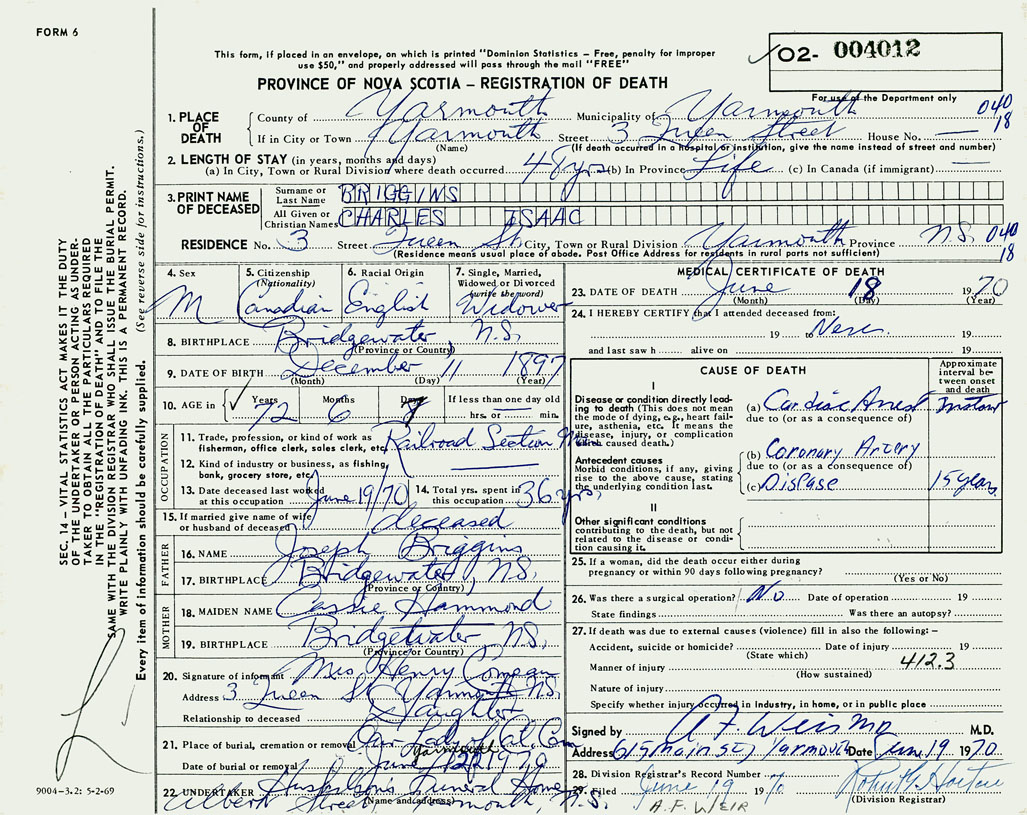 FORM 6
This form, if placed in an envelope, on which is printed "Dominion Statistics – Free, penalty for improper
use $50," and properly addressed will pass through the mail "FREE"
O2- 004012
PROVINCE OF NOVA SCOTIA – REGISTRATION OF DEATH
For use of the Department only
1. PLACE OF DEATH
County of Yarmouth Municipality of Yarmouth 040
If in City or Town Yarmouth Street 3 Queen Street House No. — 18
(Name) (If death occurred in a hospital or institution, give the name instead of street and number)
2. LENGTH OF STAY (in years, months and days)
(a) In City, Town or Rural Division where death occurred 48 yrs (b) In Province Life (c) In Canada (if immigrant) —
3. PRINT NAME OF DECEASED
Surname or Last Name BRIGGINS
All Given or Christian Names CHARLES ISAAC
RESIDENCE No. 3 Street Queen St City, Town or Rural Division Yarmouth Province N.S. 040
(Residence means usual place of abode. Post Office Address for residents in rural parts not sufficient) 18
4. Sex M
5. Citizenship (Nationality) Canadian
6. Racial Origin English
7. Single, Married, Widowed or Divorced (write the word) Widower
8. BIRTHPLACE Bridgewater, N.S.
(Province or Country)
9. DATE OF BIRTH December 11 1897
(Month) (Day) (Year)
10. AGE in Years Months Days If less than one day old
72 6 7 hrs. or — min.
OCCUPATION
11. Trade, profession, or kind of work as fisherman, office clerk, sales clerk, etc. Railroad Section
12. Kind of industry or business, as fishing, bank, grocery store, etc. —
13. Date deceased last worked at this occupation June 19/70
14. Total yrs. spent in this occupation 36 yrs.
15. If married give name of wife or husband of deceased deceased
FATHER
16. NAME Joseph Briggins
17. BIRTHPLACE Bridgewater, N.S.
(Province or Country)
MOTHER
18. MAIDEN NAME Cassie Hammond
19. BIRTHPLACE Bridgetwater, N.S.
(Province or Country)
20. Signature of informant Mrs Henry
Address 3 Queen St Yarmouth N.S.
Relationship to deceased Daughter
21. Place of burial, cremation or removal Our Lady of Cal Cem
Yarmouth
Date of burial or removal June 1970
22. UNDERTAKER Funeral Home
(Name and address)
Albert Street, Yarmouth, N.S.
MEDICAL CERTIFICATE OF DEATH
23. DATE OF DEATH June 18 1970
(Month) (Day) (Year)
24. I HEREBY CERTIFY that I attended deceased from:
19 Never 19
and last saw h alive on 19
CAUSE OF DEATH
Approximate interval between onset and death
I
Disease or condition directly leading to death (This does not mean the mode of dying, e.g., heart failure, asthenia, etc. It means the disease, injury, or complication which caused death.)
(a) Cardiac Arrest Instant
due to (or as a consequence of)
Antecedent causes
Morbid conditions, if any, giving rise to the above cause, stating the underlying condition last.
(b) Coronary Artery
due to (or as a consequence of)
(c) Disease 15 years
II
Other significant conditions contributing to the death, but not related to the disease or condition causing it.
25. If a woman, did the death occur either during pregnancy or within 90 days following pregnancy?
(Yes or No)
26. Was there a surgical operation? No Date of operation 19
State findings Was there an autopsy?
27. If death was due to external causes (violence) fill in also the following: –
Accident, suicide or homicide? Date of injury 19
(State which) 412.3
Manner of injury
(How sustained)
Nature of injury
Specify whether injury occurred in industry, in home, or in public place
Signed by A F Weir MD M.D.
Address 615 Main St, Yarmouth Date June 19 1970
28. Division Registrar's Record Number
29. Filed June 19 1970 Robert Horton
A.F. WEIR (Division Registrar)
SEC. 14 – VITAL STATISTICS ACT MAKES IT THE DUTY
OF THE UNDERTAKER OR PERSON ACTING AS UNDER-
TAKER TO OBTAIN ALL THE PARTICULARS REQUIRED
IN THE "REGISTRATION OF DEATH" AND TO FILE THE
SAME WITH THE DIVISION REGISTRAR WHO SHALL ISSUE THE BURIAL PERMIT.
WRITE PLAINLY WITH UNFADING INK. THIS IS A PERMANENT RECORD.
Every item of information should be carefully supplied. (See reverse side for instructions.)
9004-3.2: 5-2-69